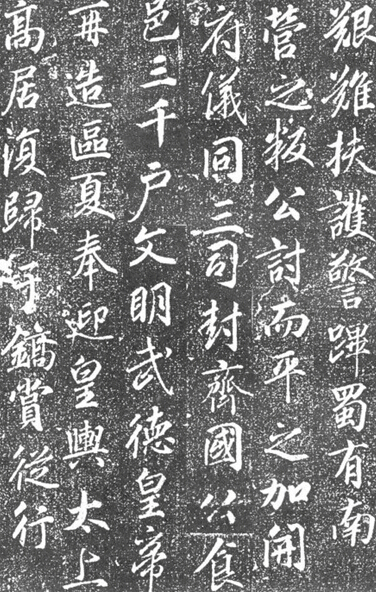 艱難扶護警蹕蜀有南
營之叛公討而平之加開
府儀同三司封齊國公食
邑三千户文明武德皇帝
再造區夏奉迎皇輿太上
高居復歸于鎬賞從行